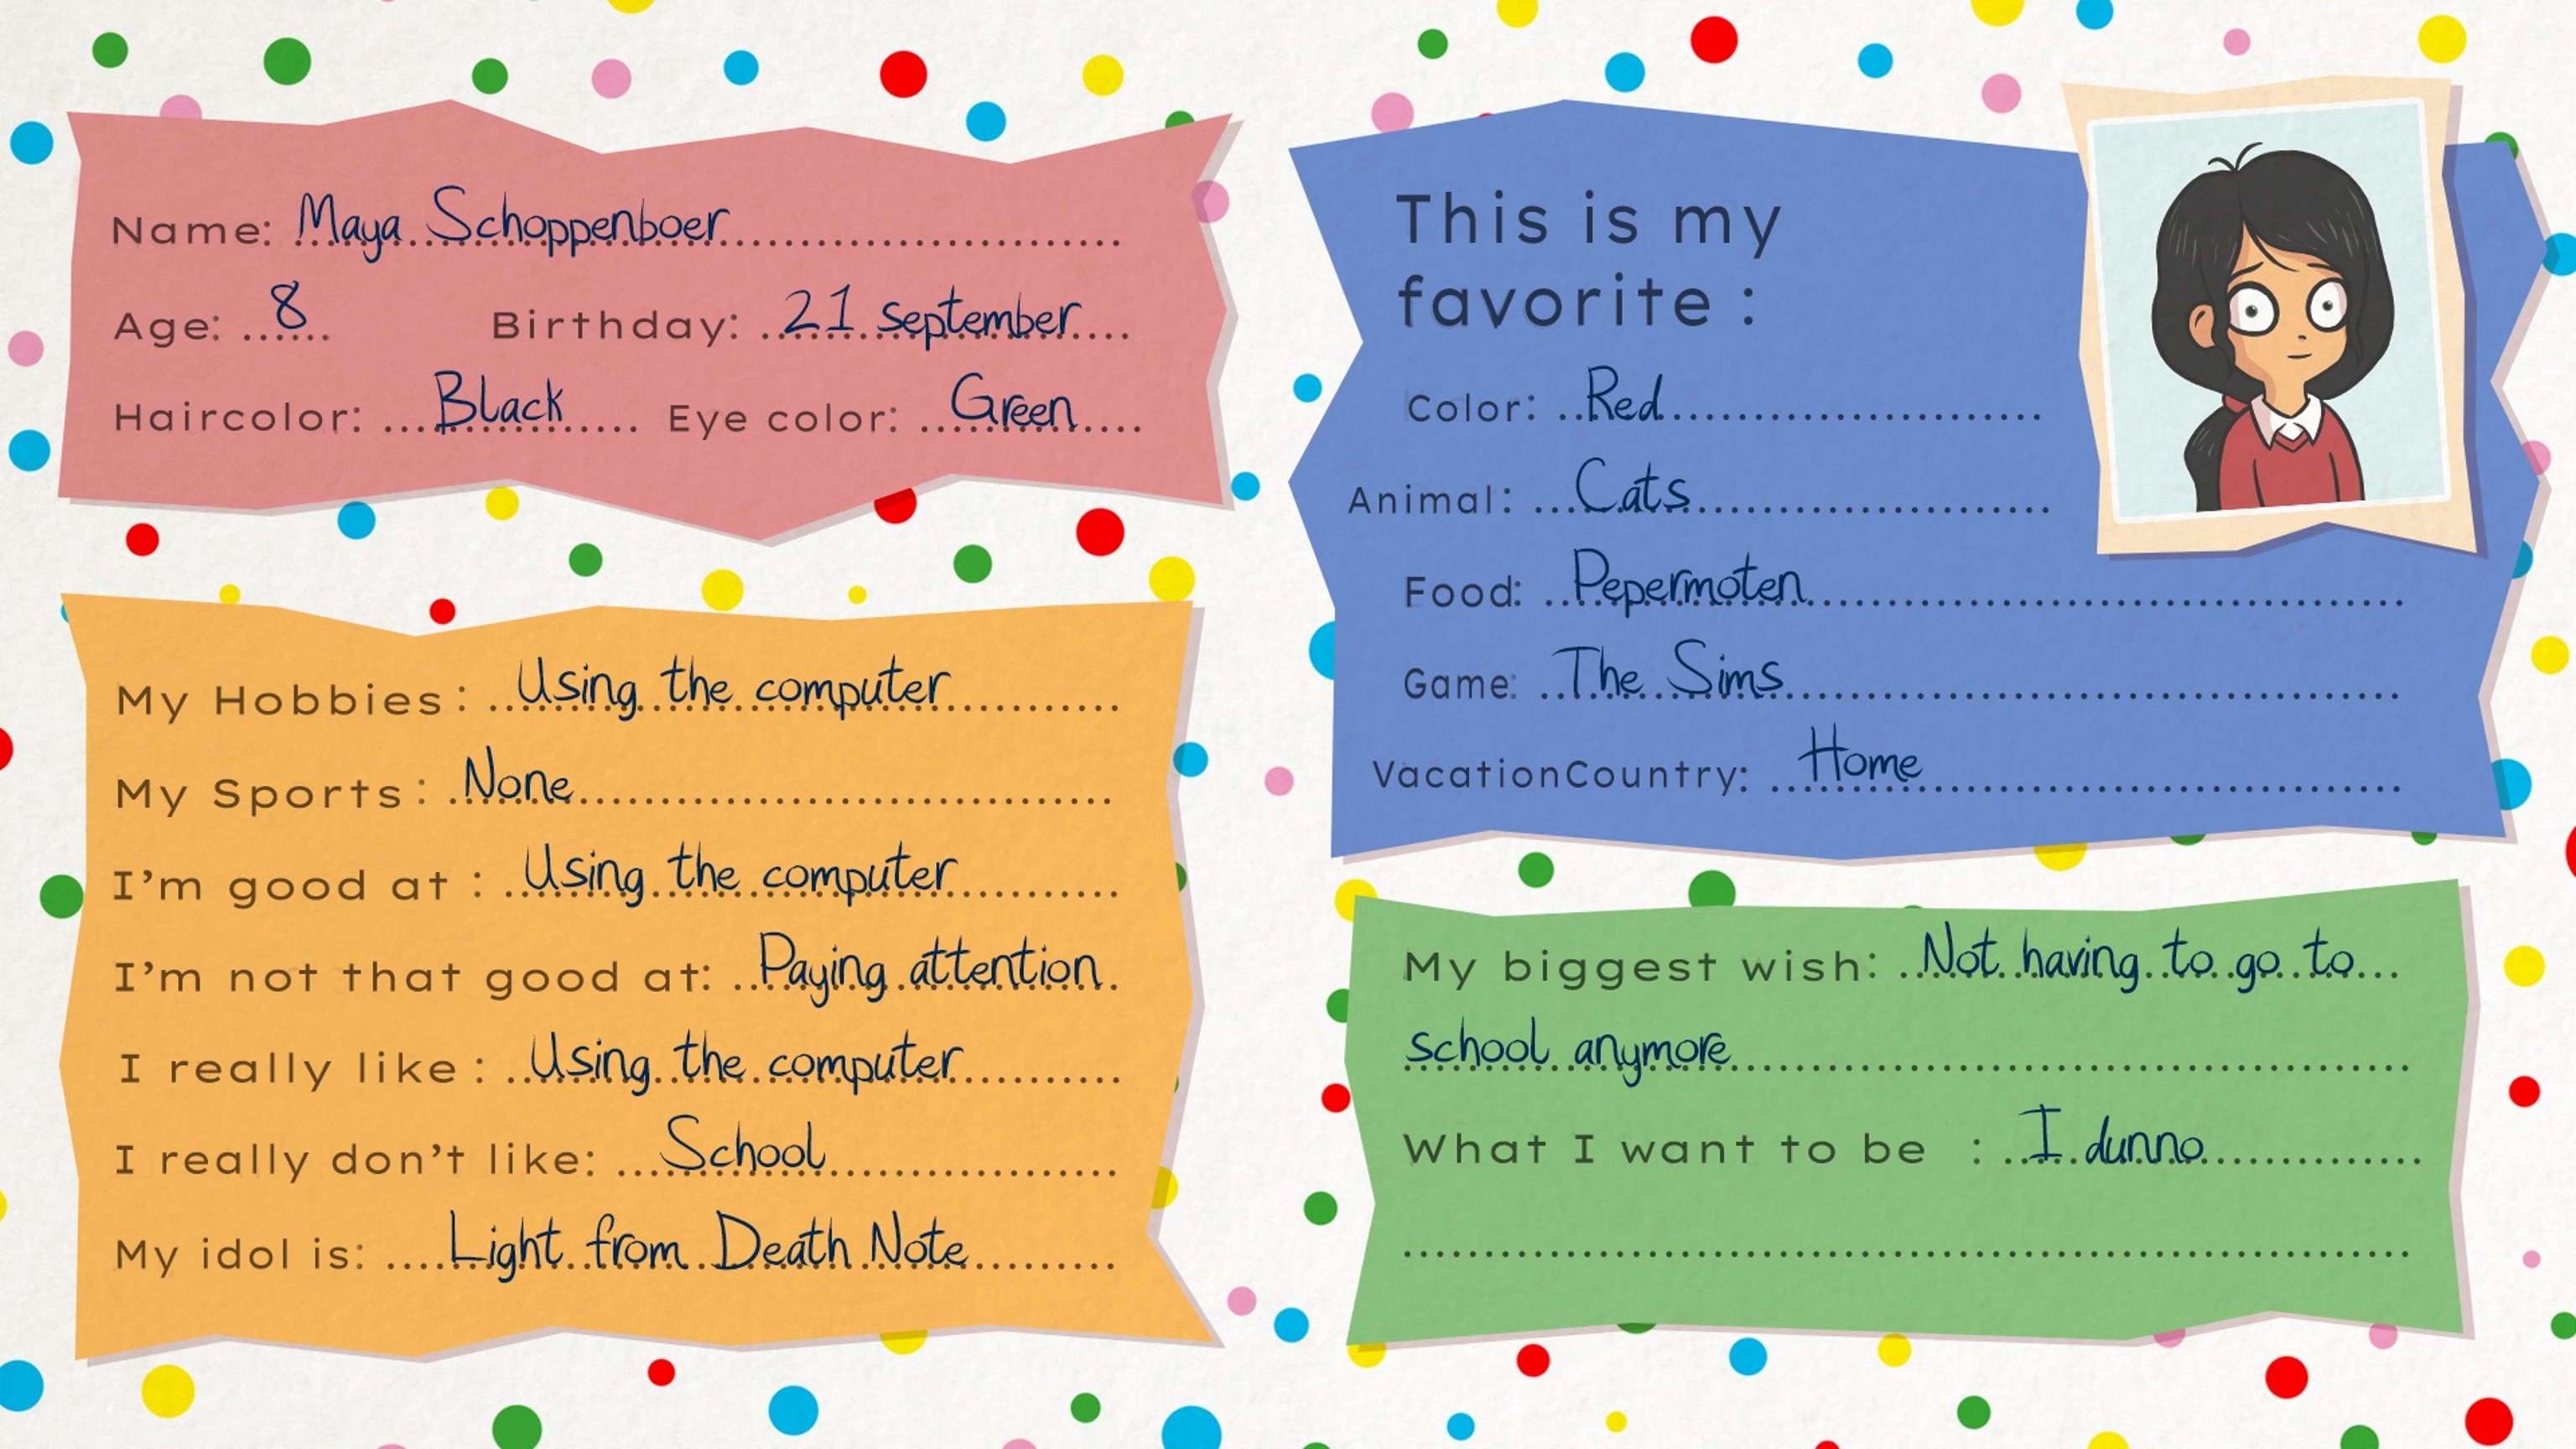 Name: Maya Schoppenboer
Age: 8 Birthday: 21 september
Haircolor: Black Eye color: Green
My Hobbies: Using the computer
My Sports: None
I'm good at: Using the computer
I'm not that good at: Paying attention
I really like: Using the computer
I really don't like: School
My idol is: Light from Death Note
This is my
favorite :
Color: Red
Animal: Cats
Food: Pepermoten
Game: The Sims
VacationCountry: Home
My biggest wish: Not having to go to
school anymore
What I want to be : I dunno